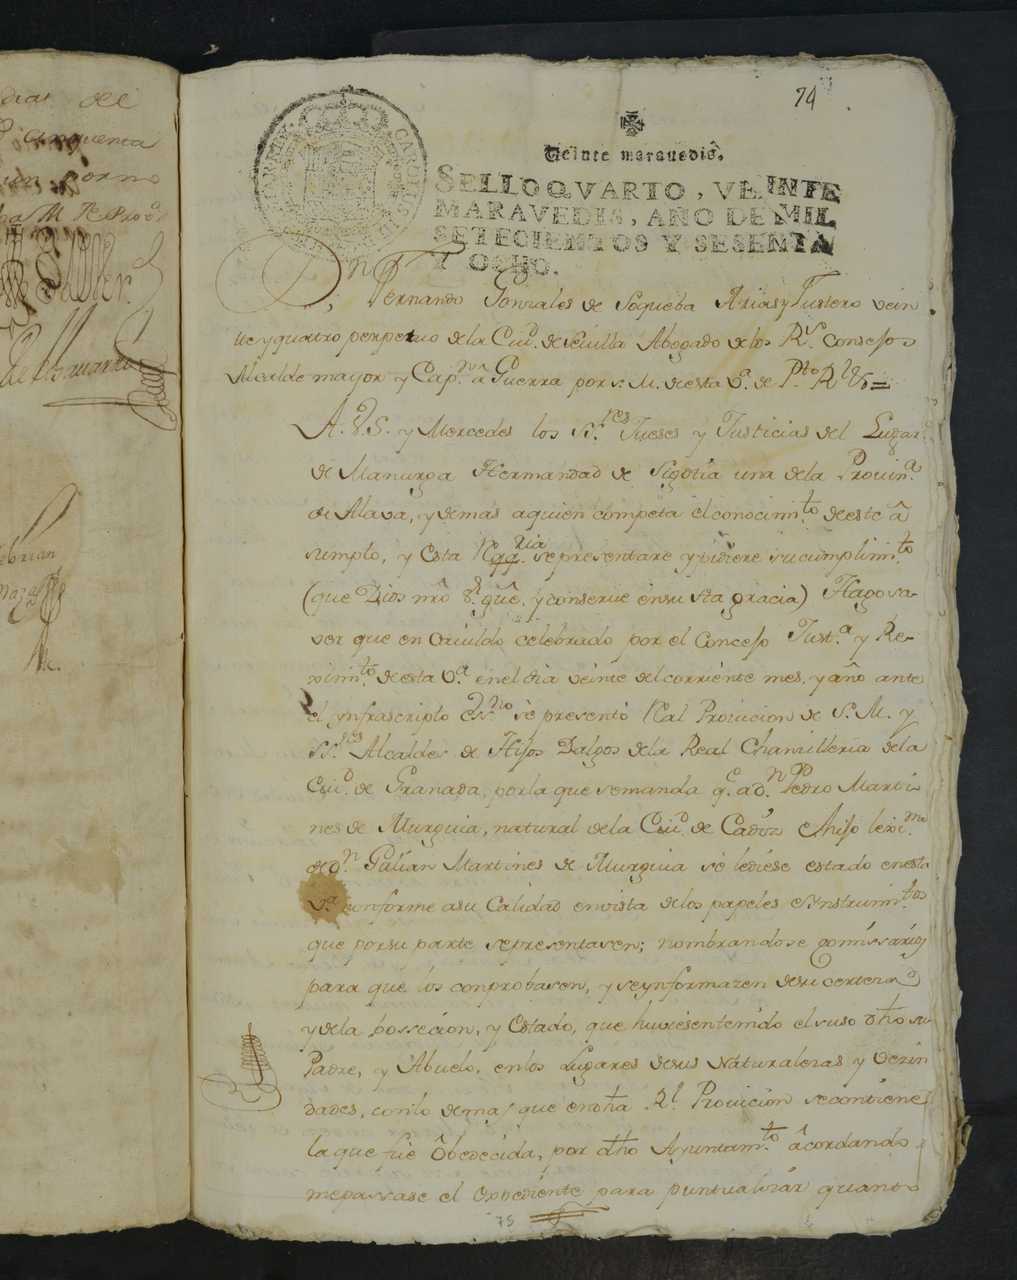 dias del
Cinquenta
74
Veinte maravedis.
SELLO QVARTO, VEINTE
MARAVEDIS, AÑO DE MIL
SETECIENTOS Y SESENTA
Y OCHO.
Dn. Fernando Gonzales de Soqueba Arias y Tustero vein
te y quatro perpetuo de la Ciud. de Sevilla Abogado de los Rs. Consejos
Alcalde mayor y Capn. a Guerra por s. M. de esta Va. de Pto Rl Vs =
A. V.S. y Mercedes los Sres. Jueses y Justicias del Lugar
de Manurga Hermandad de Sigoitia una de la Provina.
de Alava, y demas a quien competa el conocimto. de este â
sumpto, y esta Reqqria. se presentare y pidiere su cumplimto.
(que Dios nrô Sr. gûe. y conserve en su sta gracia) Hago sa-
ver que en Cavildo celebrado por el Consejo Justa. y Re-
ximto. de esta Va. en el dia veinte del corriente mes, y año ante
el ynfrascripto Essno se presentó Real Provicion de S. M. y
SSres Alcaldes de Hijos Dalgos de la Real Chansilleria de la
Ciud. de Granada, por la que se manda qe. a Dn. Pedro Marti
nes de Murguia, natural de la Ciud. de Cadiz e hijo lexmo
de Dn. Julian Martines de Murguia se lediese estado en esta
Va. conforme a su Calidad en vista de los papeles e Ynstrumtos
que por su parte se presentasen; nombrandose comissarios
para que los conprobasen, y se ynformazen de su certeza
y de la possecion, y Estado, que huviesen tenido el suso dho su
Padre, y Abuelo, en los Lugares de sus Naturalezas y Vezin
dades, con lo demas que en dha Rl. Provicion se contiene
la que fue ôbedecida, por dho Ayuntamto. âcordando
me passase el Expediente para puntualizar quanto
75